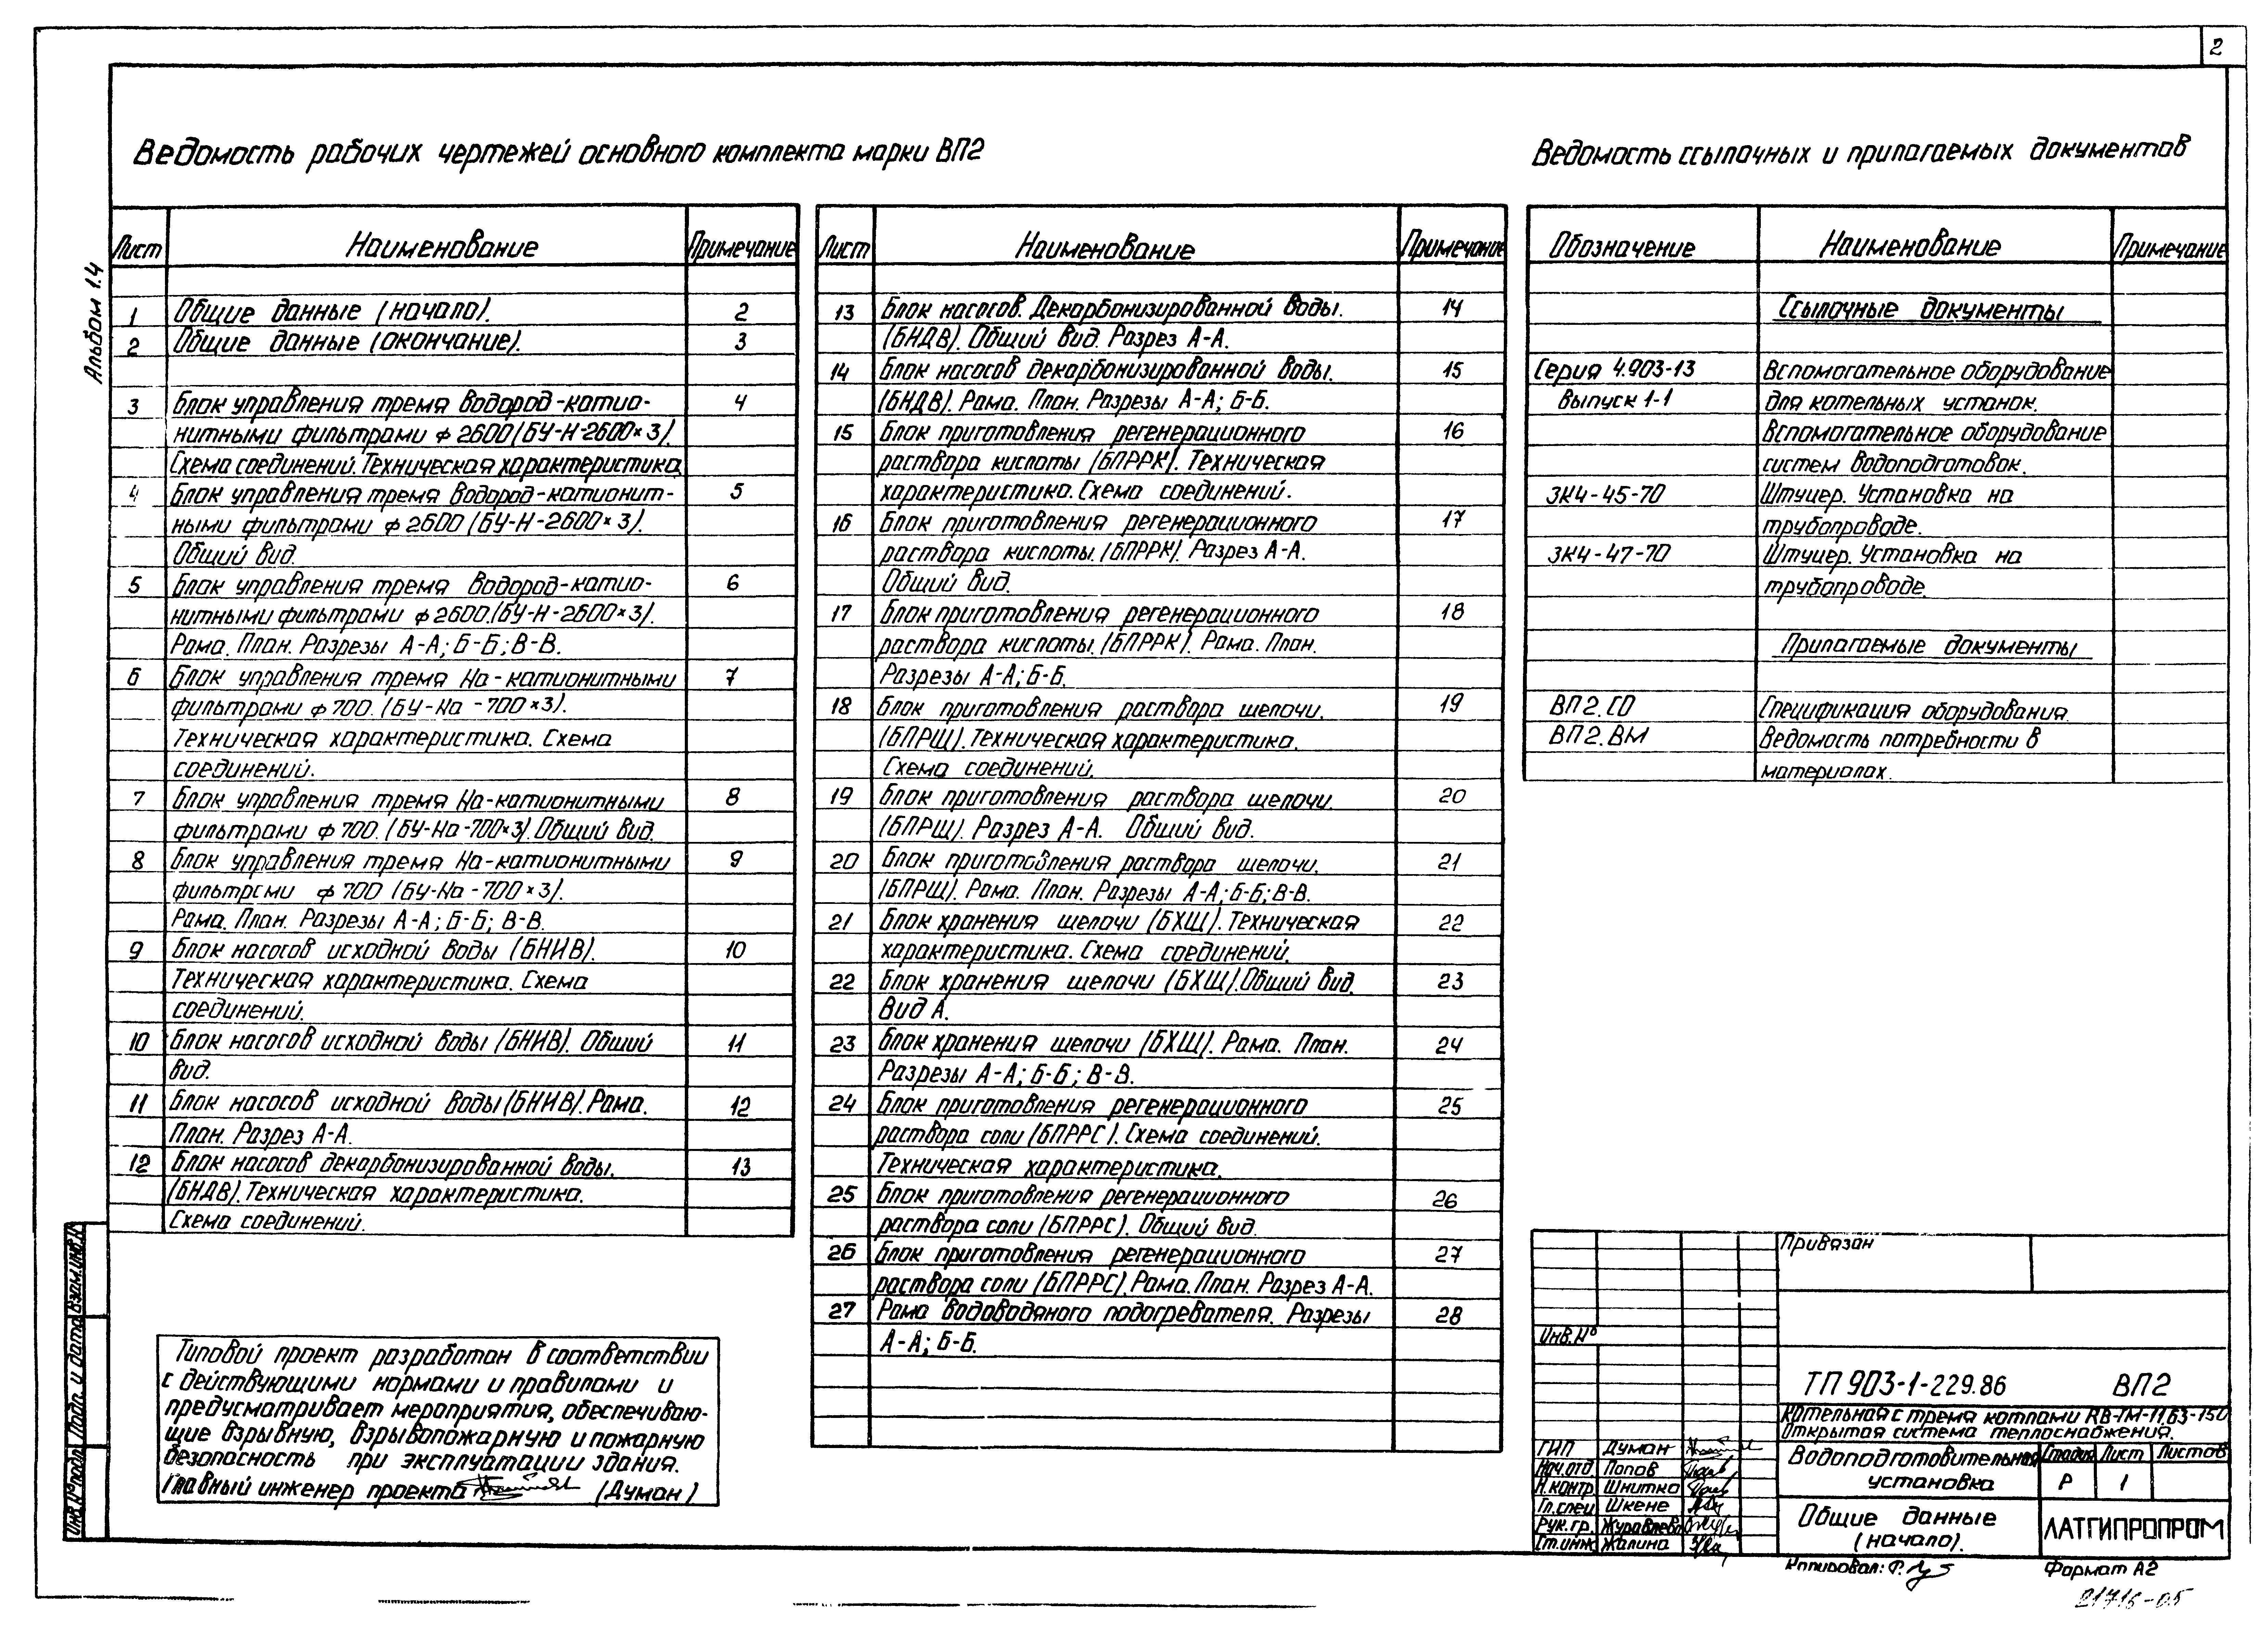 2
Альбом 1.4
Ведомость рабочих чертежей основного комплекта марки ВП2
Лист Наименование Примечание
1 Общие данные (начало). 2
2 Общие данные (окончание). 3
3 Блок управления тремя водород-катио- 4
нитными фильтрами ф 2600 (БУ-Н-2600×3).
Схема соединений. Техническая характеристика
4 Блок управления тремя водород-катионит- 5
ными фильтрами ф 2600 (БУ-Н-2600×3).
Общий вид.
5 Блок управления тремя водород-катио- 6
нитными фильтрами ф 2600. (БУ-Н-2600×3).
Рама. План. Разрезы А-А; Б-Б; В-В.
6 Блок управления тремя На-катионитными 7
фильтрами ф 700. (БУ-На-700×3).
Техническая характеристика. Схема
соединений.
7 Блок управления тремя На-катионитными 8
фильтрами ф 700. (БУ-На-700×3). Общий вид.
8 Блок управления тремя На-катионитными 9
фильтрами ф 700 (БУ-На-700×3).
Рама. План. Разрезы А-А; Б-Б; В-В.
9 Блок насосов исходной воды (БНИВ). 10
Техническая характеристика. Схема
соединений.
10 Блок насосов исходной воды (БНИВ). Общий 11
вид.
11 Блок насосов исходной воды (БНИВ). Рама. 12
План. Разрез А-А.
12 Блок насосов декарбонизированной воды. 13
(БНДВ). Техническая характеристика.
Схема соединений.
Лист Наименование Примечание
13 Блок насосов. Декарбонизированной воды. 14
(БНДВ). Общий вид. Разрез А-А.
14 Блок насосов декарбонизированной воды. 15
(БНДВ). Рама. План. Разрезы А-А; Б-Б.
15 Блок приготовления регенерационного 16
раствора кислоты (БПРРК). Техническая
характеристика. Схема соединений.
16 Блок приготовления регенерационного 17
раствора кислоты. (БПРРК). Разрез А-А.
Общий вид.
17 Блок приготовления регенерационного 18
раствора кислоты. (БПРРК). Рама. План.
Разрезы А-А; Б-Б.
18 Блок приготовления раствора щелочи. 19
(БПРЩ). Техническая характеристика.
Схема соединений.
19 Блок приготовления раствора щелочи. 20
(БПРЩ). Разрез А-А. Общий вид.
20 Блок приготовления раствора щелочи. 21
(БПРЩ). Рама. План. Разрезы А-А; Б-Б; В-В.
21 Блок хранения щелочи (БХЩ). Техническая 22
характеристика. Схема соединений.
22 Блок хранения щелочи (БХЩ). Общий вид. 23
Вид А.
23 Блок хранения щелочи (БХЩ). Рама. План. 24
Разрезы А-А; Б-Б; В-В.
24 Блок приготовления регенерационного 25
раствора соли (БПРРС). Схема соединений.
Техническая характеристика.
25 Блок приготовления регенерационного 26
раствора соли (БПРРС). Общий вид.
26 Блок приготовления регенерационного 27
раствора соли (БПРРС). Рама. План. Разрез А-А.
27 Рама водоводяного подогревателя. Разрезы 28
А-А; Б-Б.
Ведомость ссылочных и прилагаемых документов
Обозначение Наименование Примечание
Ссылочные документы
Серия 4.903-13 Вспомогательное оборудование
Выпуск 1-1 для котельных устанок.
Вспомогательное оборудование
систем водоподготовок.
ЗК4-45-70 Штуцер. Установка на
трубопроводе.
ЗК4-47-70 Штуцер. Установка на
трубопроводе.
Прилагаемые документы
ВП2.СО Спецификация оборудования.
ВП2.ВМ Ведомость потребности в
материалах.
Типовой проект разработан в соответствии
с действующими нормами и правилами и
предусматривает мероприятия, обеспечиваю-
щие взрывную, взрывопожарную и пожарную
безопасность при эксплуатации здания.
Главный инженер проекта (Думан)
Взам.инв.№
Подп. и дата
Инв.№ подл.
Привязан
Инв.№
ТП 903-1-229.86 ВП2
Котельная с тремя котлами КВ-ТМ-11,63-150
Открытая система теплоснабжения.
ГИП Думан
Нач.отд. Попов
Н.контр Шнитко
Гл.спец Шкене
Рук.гр. Журавлева
Ст.инж Жалина
Водоподготовительная
установка
Стадия Лист Листов
Р 1
Общие данные
(начало).
ЛАТГИПРОПРОМ
Копировал:
Формат А2
21716-05